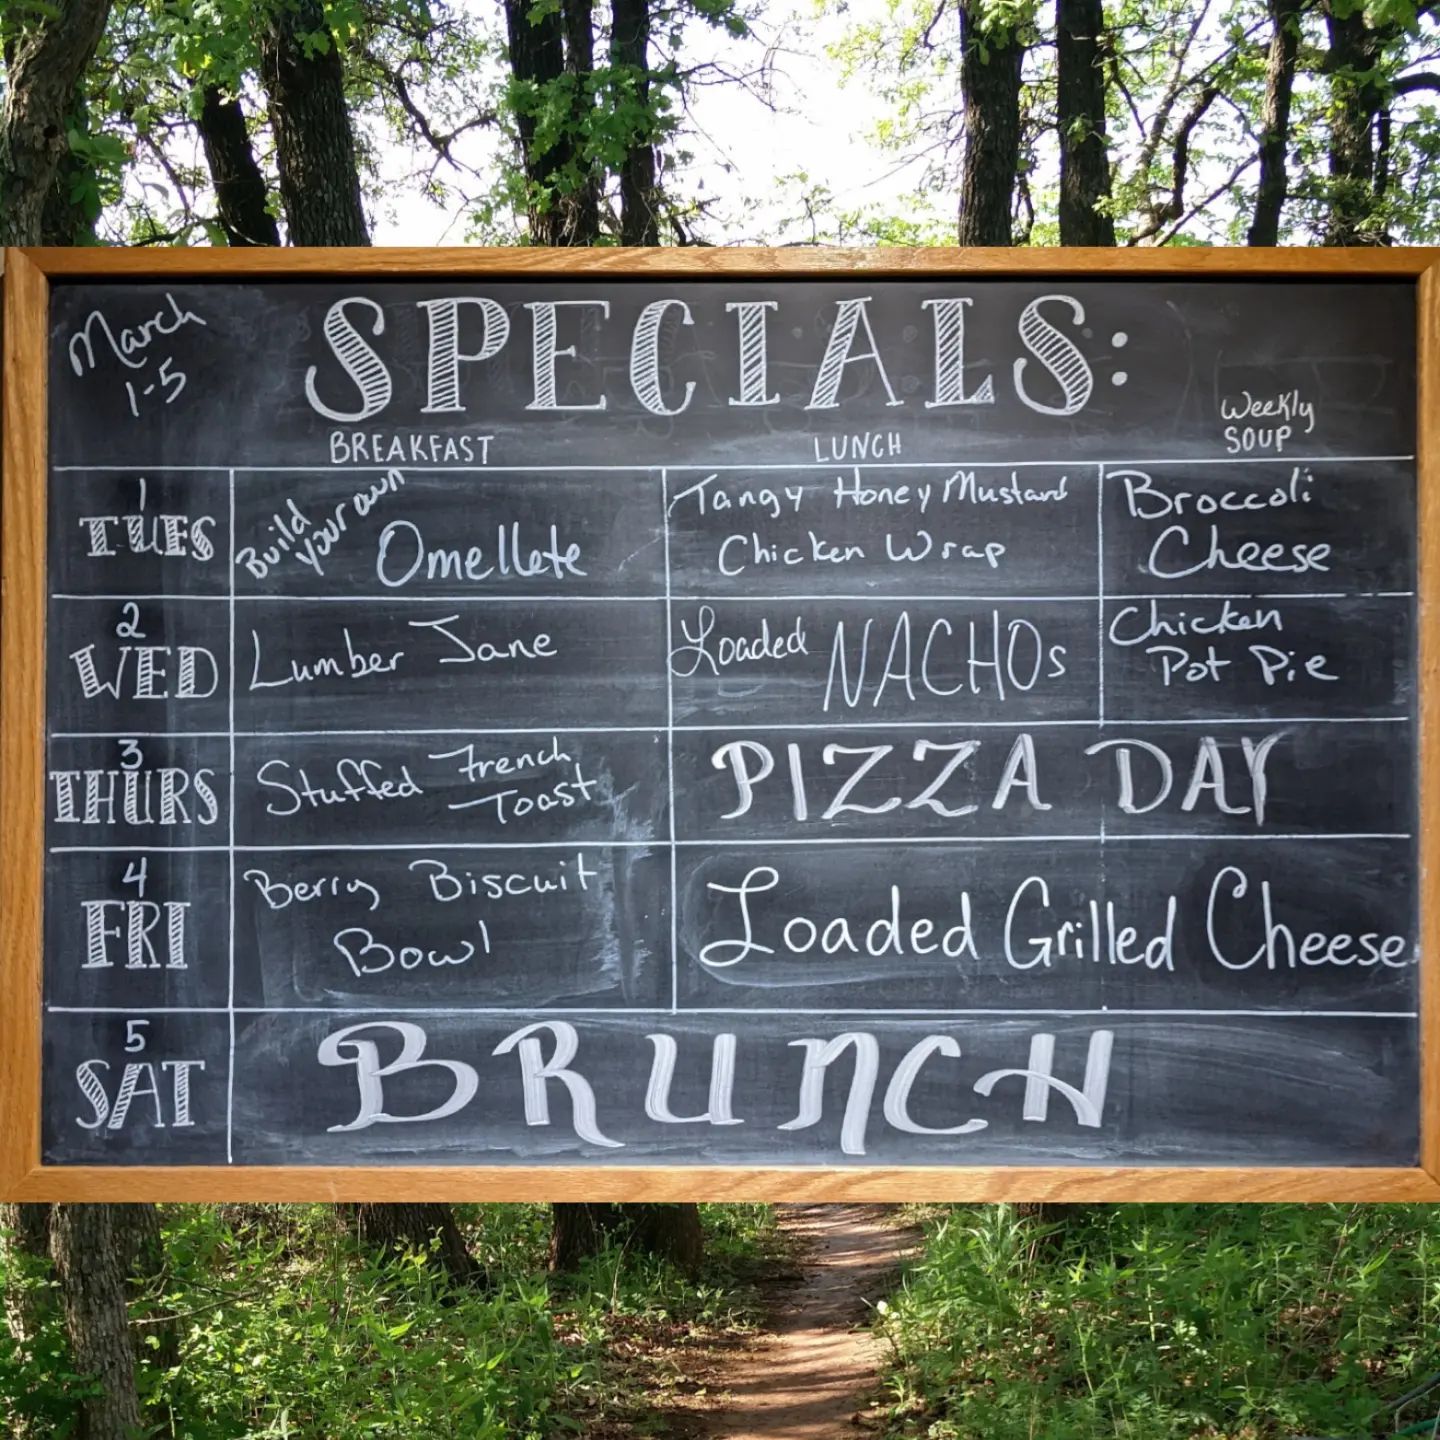 March
1-5
SPECIALS:
BREAKFAST
LUNCH
Weekly
SOUP
1
TUES
Build
your own
Omellete
Tangy Honey Mustard
Chicken Wrap
Broccoli
Cheese
2
WED
Lumber Jane
Loaded NACHOs
Chicken
Pot Pie
3
THURS
Stuffed French
Toast
PIZZA DAY
4
FRI
Berry Biscuit
Bowl
Loaded Grilled Cheese
5
SAT
BRUNCH